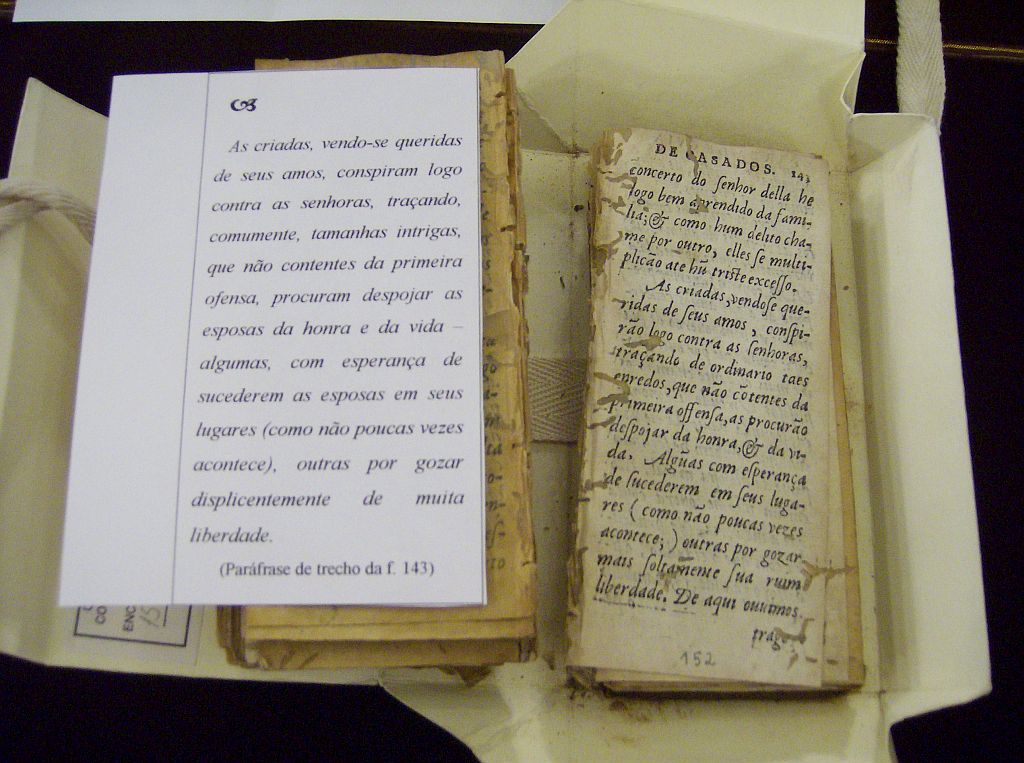 As criadas, vendo-se queridas
de seus amos, conspiram logo
contra as senhoras, traçando,
comumente, tamanhas intrigas,
que não contentes da primeira
ofensa, procuram despojar as
esposas da honra e da vida –
algumas, com esperança de
sucederem as esposas em seus
lugares (como não poucas vezes
acontece), outras por gozar
displicentemente de muita
liberdade.
(Paráfrase de trecho da f. 143)
DE CASADOS. 143
concerto do ſenhor della he
logo bem aprendido da fami-
lia; & como hum delito cha-
me por outro, elles ſe multi-
plicão ate hũ triſte exceſſo.
As criadas, vendoſe que-
ridas de ſeus amos, conſpi-
rão logo contra as ſenhoras,
traçando de ordinario taes
enredos, que não cõtentes da
primeira offenſa, as procurão
deſpojar da honra, & da vi-
da. Algũas com eſperança
de ſucederem em ſeus luga-
res (como não poucas vezes
acontece;) outras por gozar
mais ſoltamente ſua ruim
liberdade. De aqui ouuimos
trag
152